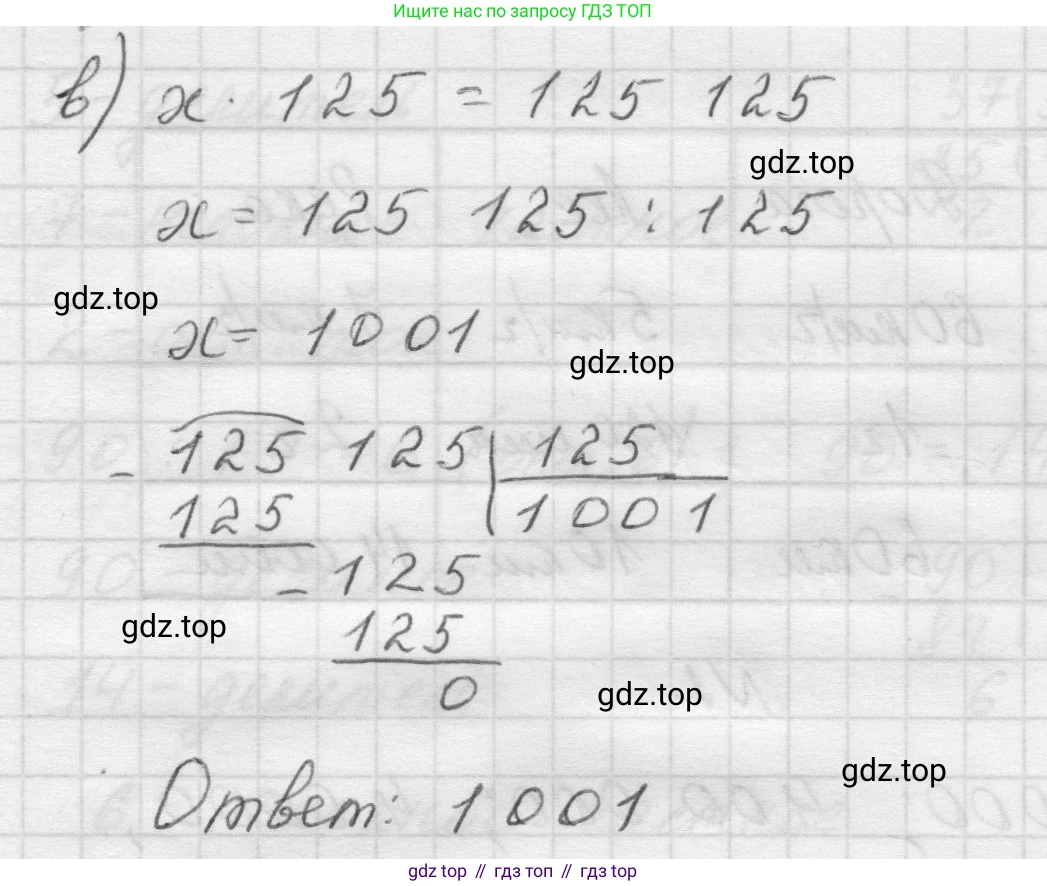 Ищите нас по запросу ГДЗ ТОП
в) x · 125 = 125 125
gdz.top
x = 125 125 : 125
gdz.top
x = 1001
gdz.top
- 125 125 | 125
125 1001
- 125
gdz.top
125
0
gdz.top
gdz.top
Ответ: 1001
gdz.top // гдз топ // гдз.top